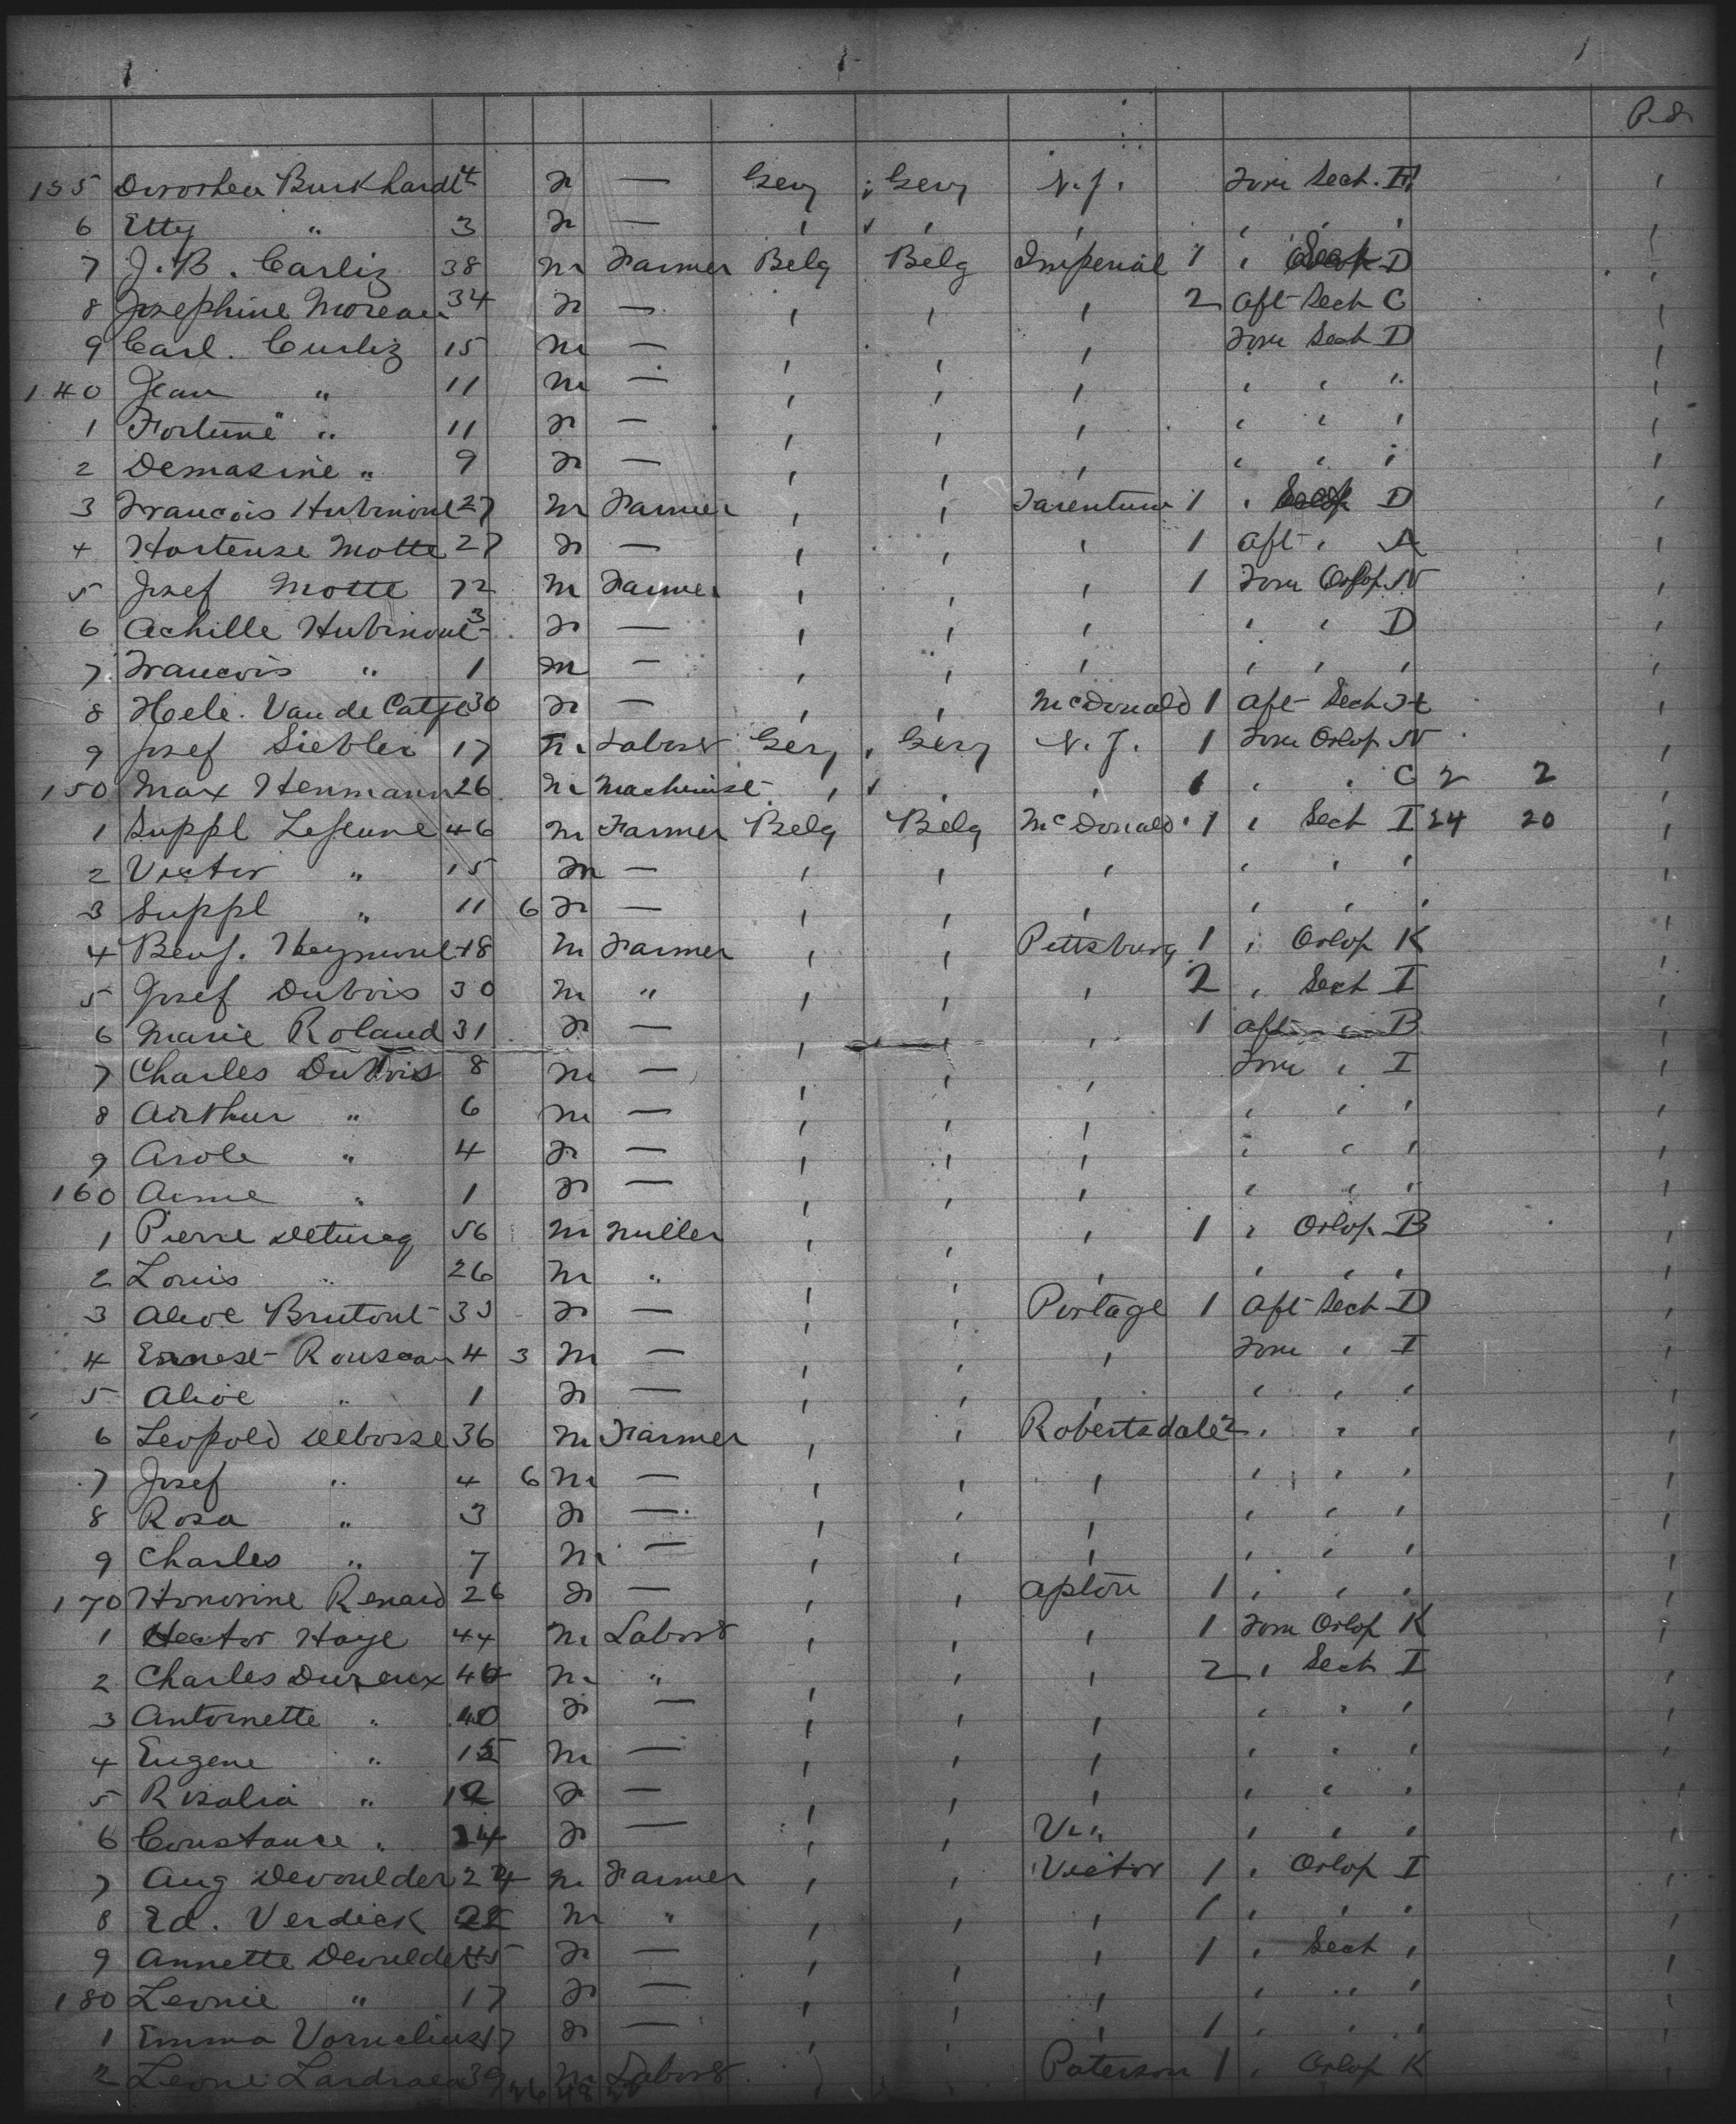 P.S.
135 Dorothea Burkhardt 4 F — Gery Gery N.J. Forw Sect. H
6 Etty " 3 F — , , , , , ,
7 J. B. Carliz 38 M Farmer Belg Belg Imperial 1 , D
8 Josephine Moreau 34 F — , , , 2 Aft Sect C
9 Carl. Curliz 15 M — , , , Forw Sect D
140 Jean " 11 M — , , , , , "
1 Fortune " 11 F — , , , , , ,
2 Demasine " 9 F — , , , , , ,
3 Francois Hubinont 27 M Farmer , , Tarentum 1 , D
4 Hortense Motte 27 F — , , , 1 Aft , A
5 Josef Motte 72 M Farmer , , , 1 Forw Orlop N
6 Achille Hubinont 3 F — , , , , , D
7 Francois " 1 M — , , , , , ,
8 Hele. Van de Catje 30 F — , , McDonald 1 Aft Sect H
9 Josef Siebler 17 M Labor Gery , Gery N.J. 1 Forw Orlop N
150 Max Henmann 26 M Machinist , , , 1 , , C 2 2
1 Suppl Lefeune 46 M Farmer Belg Belg McDonald 1 , Sect I 24 20
2 Victor " 15 M — , , , , , ,
3 Suppl " 11 6 F — , , , , , ,
4 Benj. Heymont 48 M Farmer , , Pittsburg 1 , Orlop K
5 Josef Dubois 30 M " , , , 2 , Sect I
6 Marie Roland 31 F — , , , 1 Aft , B
7 Charles Dubois 8 M — , , , Forw , I
8 Arthur " 6 M — , , , , , ,
9 Arole " 4 F — , , , , , ,
160 Aime " 1 F — , , , , , ,
1 Pierre Detureg 56 M Miller , , , 1 , Orlop B
2 Louis " 26 M " , , , , , ,
3 Alice Brutont 33 F — , , Portage 1 Aft Sect D
4 Ernest Rouseau 4 3 M — , , , Forw , I
5 Alice " 1 F — , , , , , ,
6 Leopold Debosse 36 M Farmer , , Robertsdale 2 , , ,
7 Josef " 4 6 M — , , , , , ,
8 Rosa " 3 F — , , , , , ,
9 Charles " 7 M — , , , , , ,
170 Honorine Renard 26 F — , , Apton 1 , , ,
1 Hector Haye 44 M Labor , , , 1 Forw Orlop K
2 Charles Dureux 46 M " , , , 2 , Sect I
3 Antoinette " 40 F — , , , , , ,
4 Eugene " 15 M — , , , , , ,
5 Rosalia " 12 F — , , , , , ,
6 Constance " 24 F — , , , , ,
7 Aug Devoulder 24 M Farmer , , Victor 1 , Orlop I
8 Ed. Verdick 28 M " , , , 1 , , ,
9 Annette Devoulder 45 F — , , , 1 , Sect ,
180 Leonie " 17 F — , , , , , ,
1 Emma Vornelius 17 F — , , , 1 , , ,
2 Leone 39 M Labor , , Paterson 1 , Orlop K